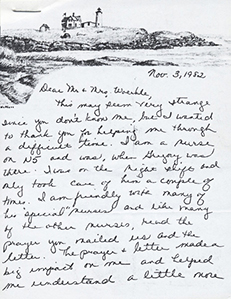 Nov. 3, 1982
Dear Mr & Mrs.
This may seem very strange
since you don't know me, but I wanted
to thank you for helping me through
a difficult time. I am a nurse
on N5 and was, when Gregory was
there. I was on the night shift and
only took care of him a couple of
times. I am friendly with many of
his "special" nurses and like many
of the other nurses, read the
prayer you mailed us and the
letter. The prayer & letter made a
big impact on me and helped
me understand a little more